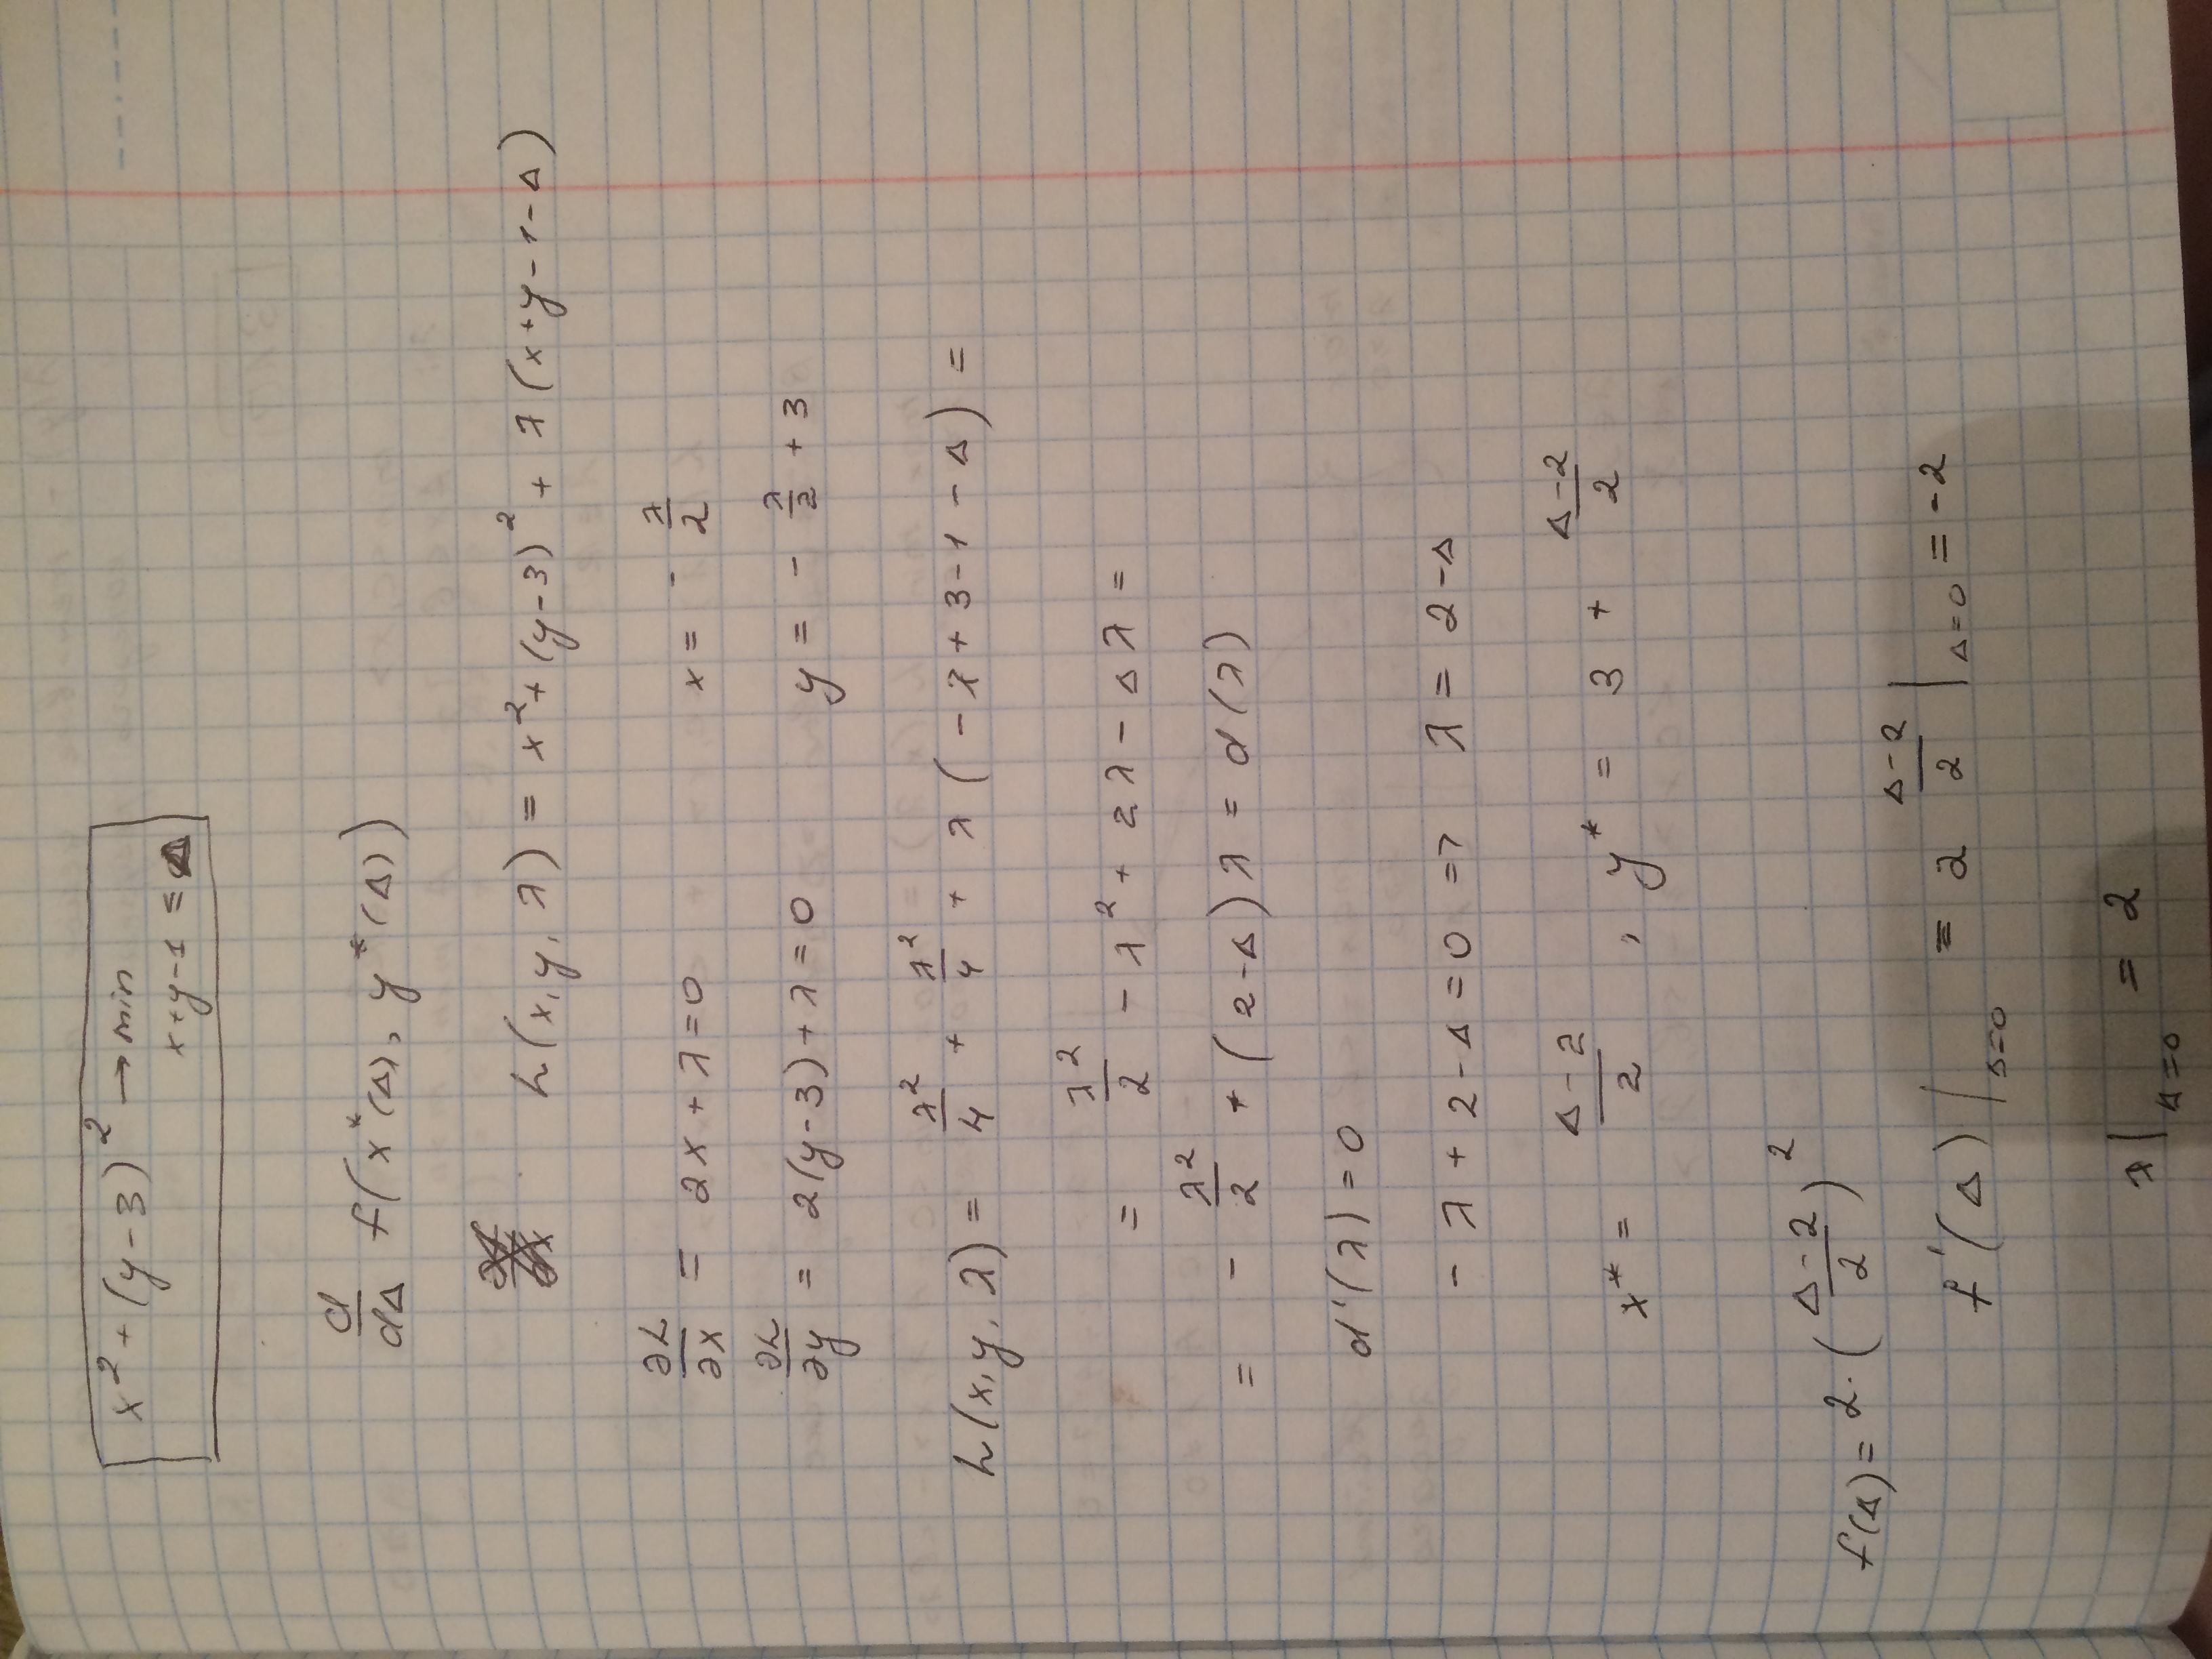 x² + (y-3)² → min
x+y-1 = Δ
d/dΔ f(x*(Δ), y*(Δ))
L(x,y,λ) = x² + (y-3)² + λ(x+y-1-Δ)
∂L/∂x = 2x+λ=0 x = - λ/2
∂L/∂y = 2(y-3)+λ=0 y = - λ/2 + 3
L(x,y,λ) = λ²/4 + λ²/4 + λ(-λ+3-1-Δ) =
= λ²/2 - λ² + 2λ - Δλ =
= - λ²/2 + (2-Δ)λ = d(λ)
d'(λ) = 0
-λ + 2 - Δ = 0 => λ = 2-Δ
x* = Δ-2/2 , y* = 3 + Δ-2/2
f(Δ) = 2·(Δ-2/2)²
f'(Δ)|Δ=0 = 2 Δ-2/2 |Δ=0 = -2
λ|Δ=0 = 2